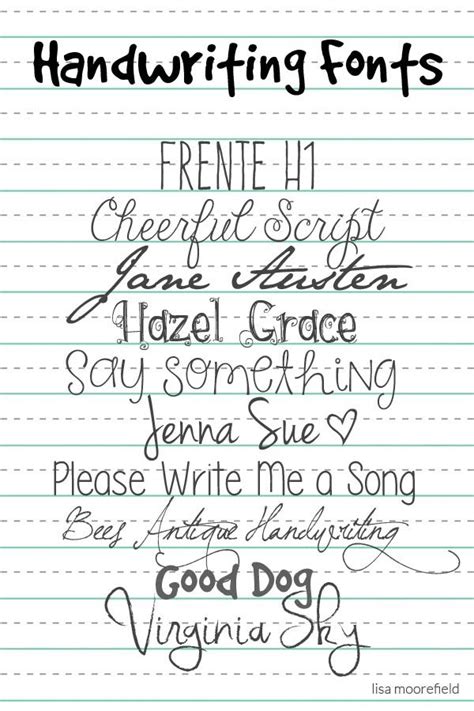 Handwriting Fonts
FRENTE H1
Cheerful Script
Jane Austen
Hazel Grace
Say Something
Jenna Sue ♡
Please Write Me a Song
Bees Antique Handwriting
Good Dog
Virginia Sky
lisa moorefield